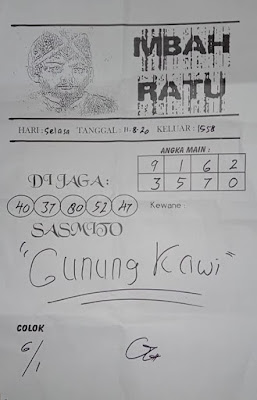 MBAH
RATU
HARI : Selasa TANGGAL : 11-8-20 KELUAR : 1558
ANGKA MAIN :
9 1 6 2
3 5 7 0
DI JAGA :
40 37 80 52 47
Kewane :
SASMITO
"Gunung Kawi"
COLOK
6/1